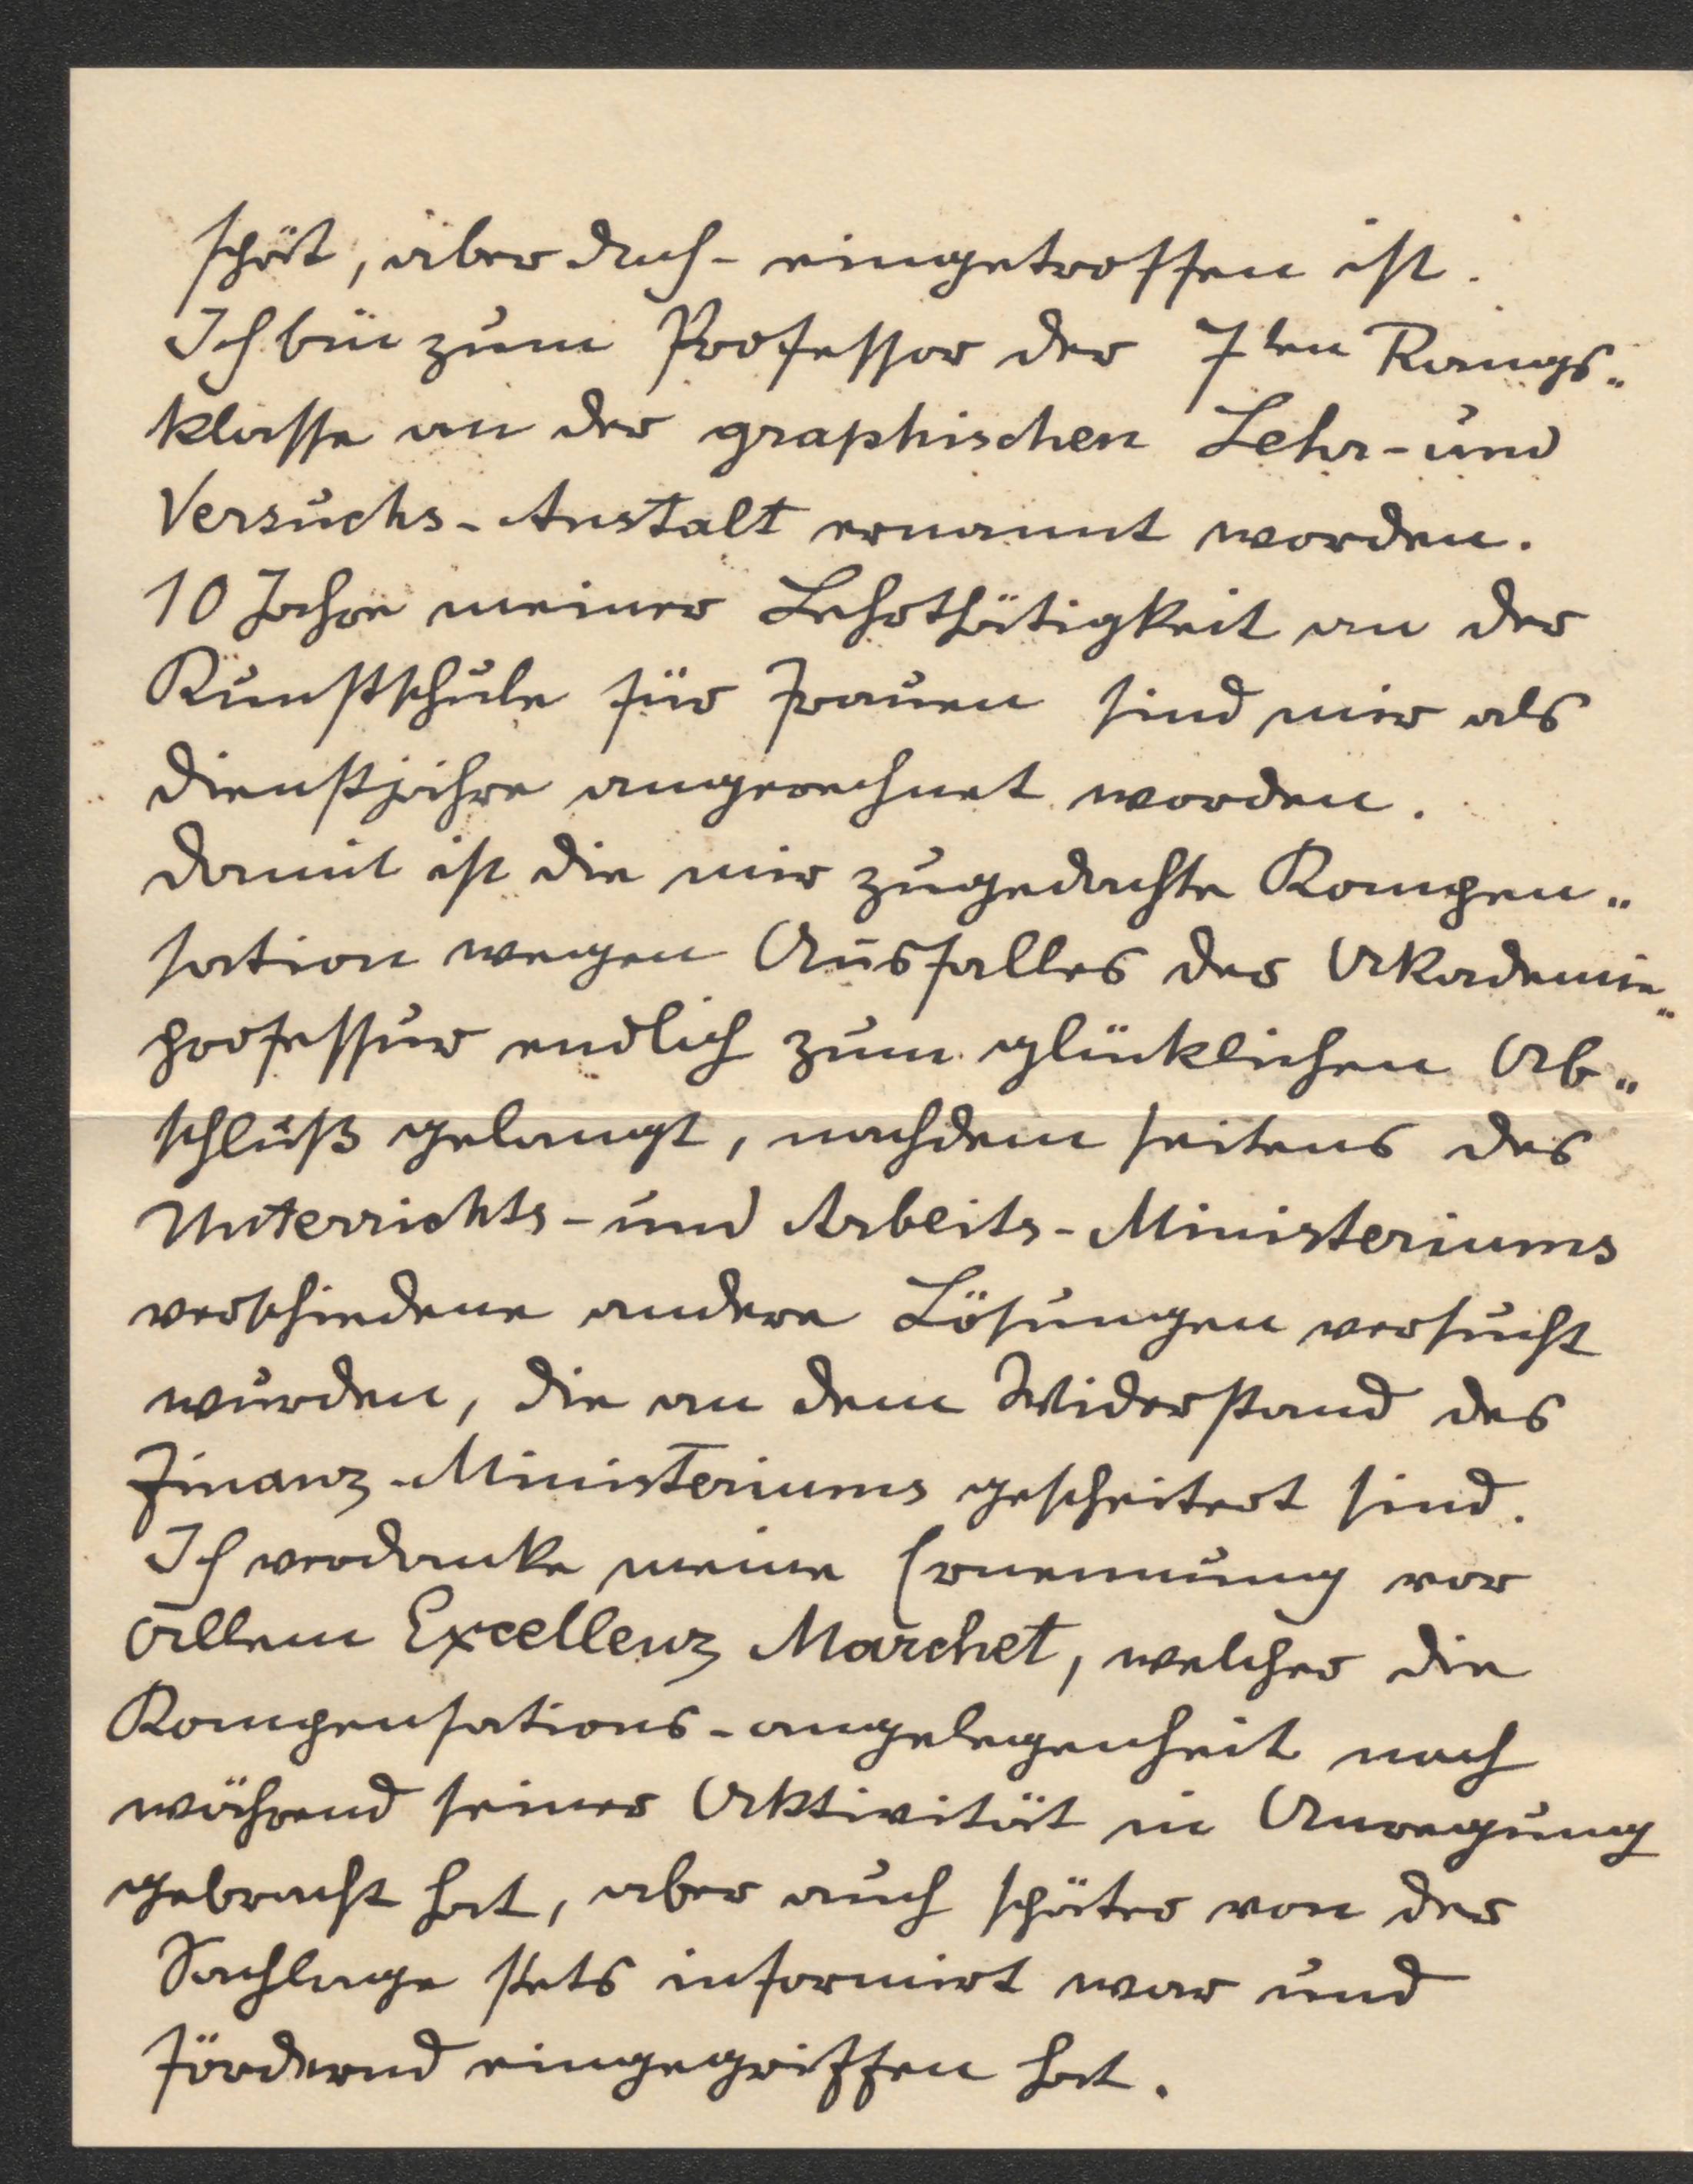 spät, aber doch - eingetroffen ist.
Ich bin zum Professor der 7ten Rangs„
klasse an der graphischen Lehr- und
Versuchs-Anstalt ernannt worden.
10 Jahre meiner Lehrthätigkeit an der
Kunstschule für Frauen sind mir als
Dienstjahre angerechnet worden.
Damit ist die mir zugedachte Kompen„
sation wegen Ausfalles der Akademie„
professur endlich zum glücklichen Ab„
schluß gelangt, nachdem seitens des
Unterrichts- und Arbeits-Ministeriums
verschiedene andere Lösungen versucht
wurden, die an dem Widerstand des
Finanz-Ministeriums gescheitert sind.
Ich verdanke meine Ernennung vor
Allem Excellenz Marchet, welcher die
Kompensations-angelegenheit noch
während seiner Aktivität in Anregung
gebracht hat, aber auch später von der
Sachlage stets informirt war und
fördernd eingegriffen hat.